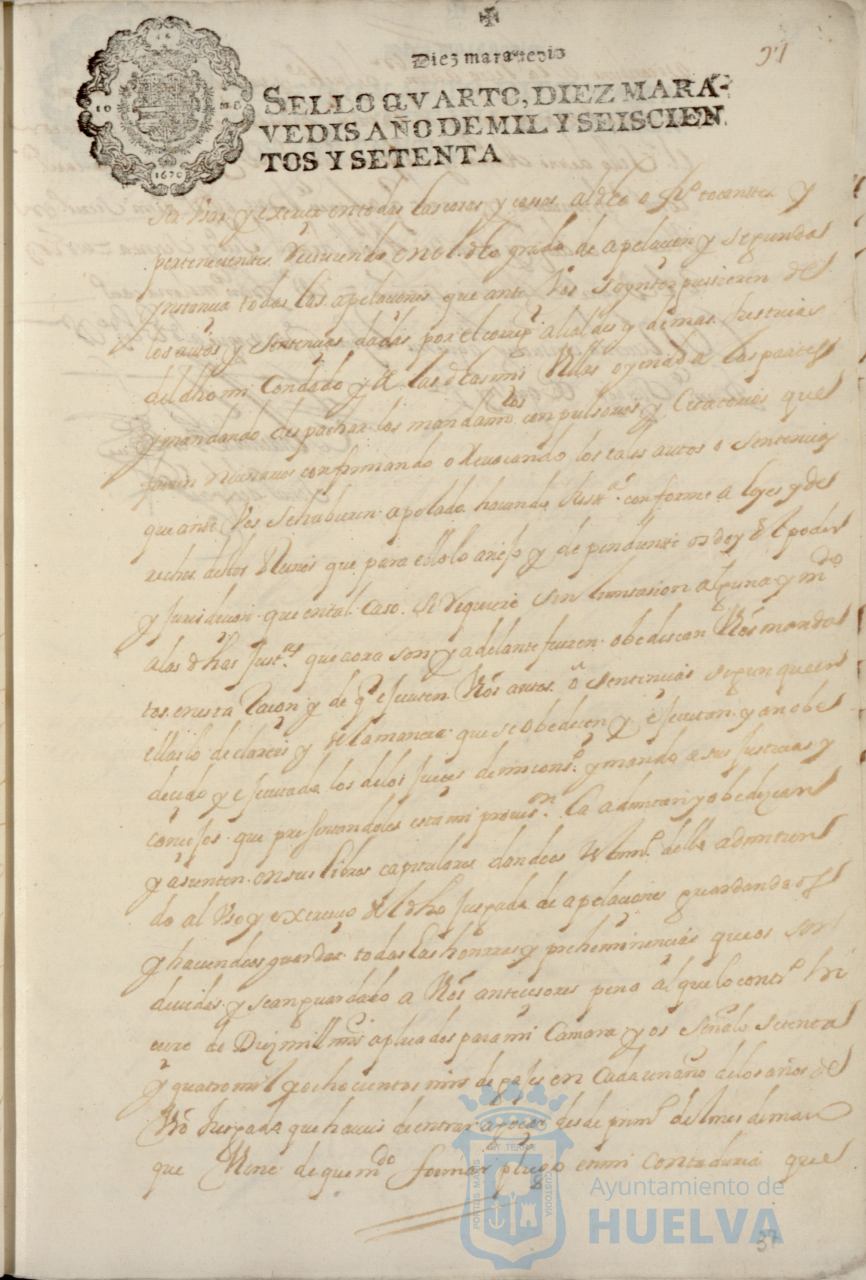 Diez marauedis
SELLO QVARTO, DIEZ MARA-
VEDIS AÑO DE MIL Y SEISCIEN
TOS Y SETENTA
1670
y exercer en todas las cosas y casos al dho ofiº tocantes y
pertenecientes en el dho grado de apelacion y segunda
ynstancia todas las apelaciones que ante Vos se ynterpusieren de
los autos y sentencias dadas por el corregr alcaldes y demas Justicias
del dho mi Condado y de las dhas mis Villas oyendo a las partes
y mandando despachar los mandamtos conpulsorios y citatorios que
fueren necesarios confirmando o Revocando los tales autos o sentencias
que ante Vos se hubieren apelado haciendo Justa conforme a leyes y de
rechos destos Reinos que para ello lo anejo y dependiente os doy el poder
y Jurisdicion que en tal caso se requiere sin limitasion alguna y mdo
a las dhas Justas que aora son y adelante fueren obedescan Vros manda
tos en esta Raçon y de que executen Vros autos o sentencias segun que en
ellas lo declareis y de la manera que se obedecen y executan y an obe
decido y executado los de los Jueces de mi consº y mando a sus Justicias y
concejos que presentandoles esta mi provison la admitan y obedezcan
y asienten en sus libros capitulares dandoos testimº della admitien
do al Vso y exercicio del dho Juzgado de apelaciones guardandoos
y haciendoos guardar todas las honrras y preheminencias que os son
devidas y sean guardado a Vros antecesores pena al que lo contrº hi
ciere de Diez mill mrs aplicados para mi Camara y os señalo setenta
y quatro mil y ochocientos mrs de en cada un año de los años de
Vro Juzgado que haveis de entrar a goçar desde primº del mes de março
que Viene de que mdo formar pliego en mi contaduria que
PORTUS MARIS ET TERRAE CUSTODIA
Ayuntamiento de
HUELVA
37